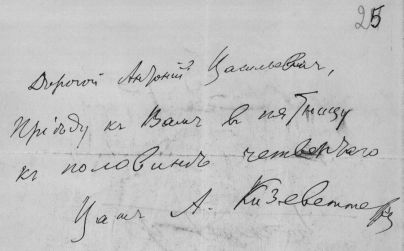 25
Дорогой Антоній Васильевич,
Пріѣду къ Вамъ въ пятницу
къ половинѣ четвертаго
Вашъ А. Кизеветтеръ